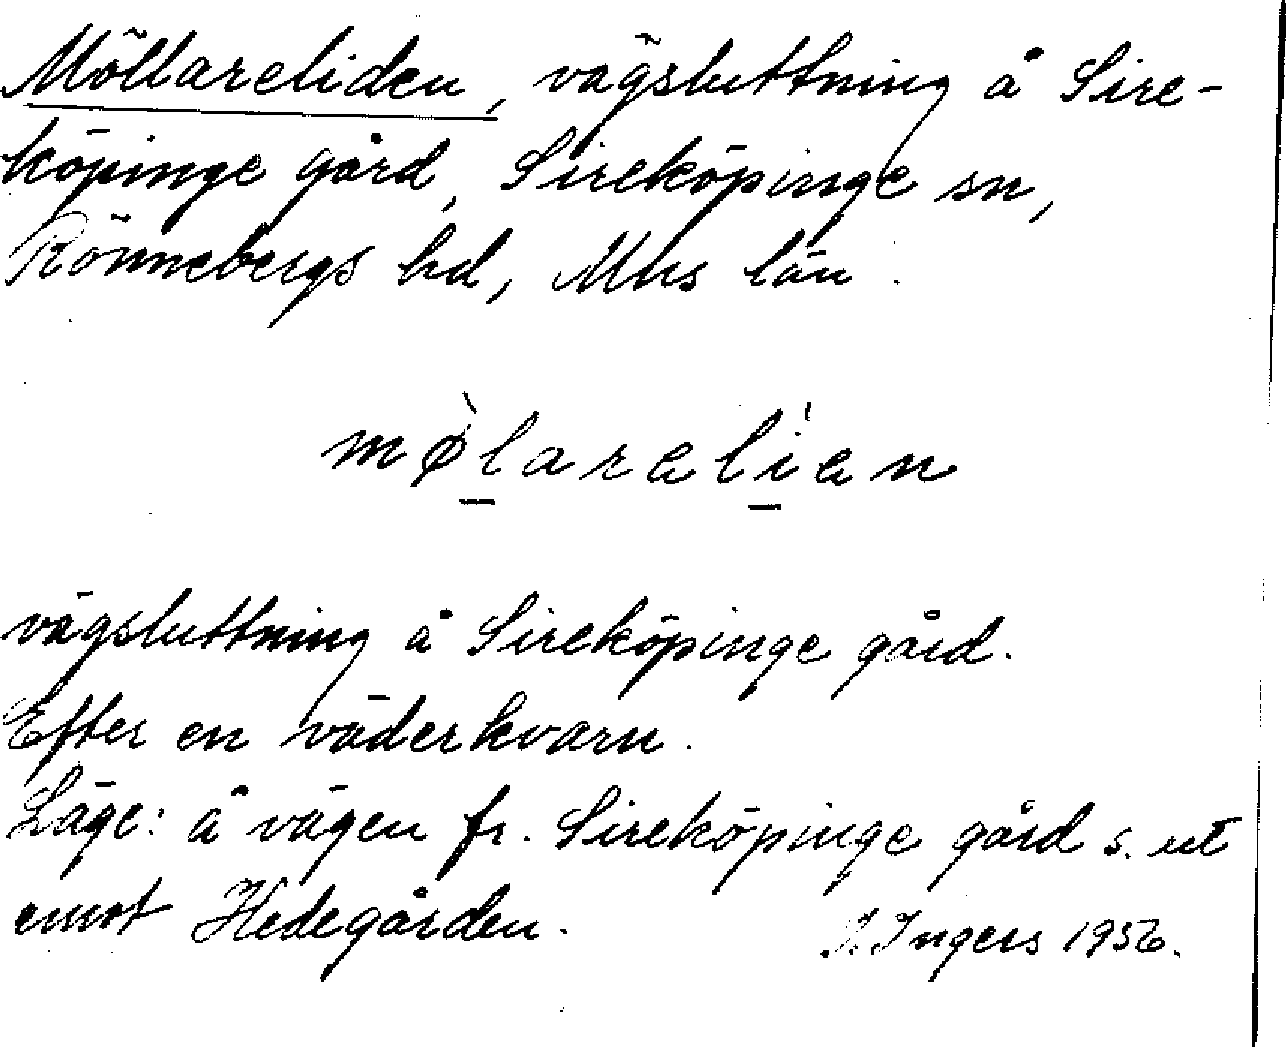 Möllareliden, vägsluttning å Sire-
köpinge gård, Sireköpinge sn,
Rönnebergs hd, Mhs län.
mø̀larelíen
vägsluttning å Sireköpinge gård.
Efter en väderkvarn.
Läge: å vägen fr. Sireköpinge gård s. ut
emot Hedegården.
I. Ingers 1956.